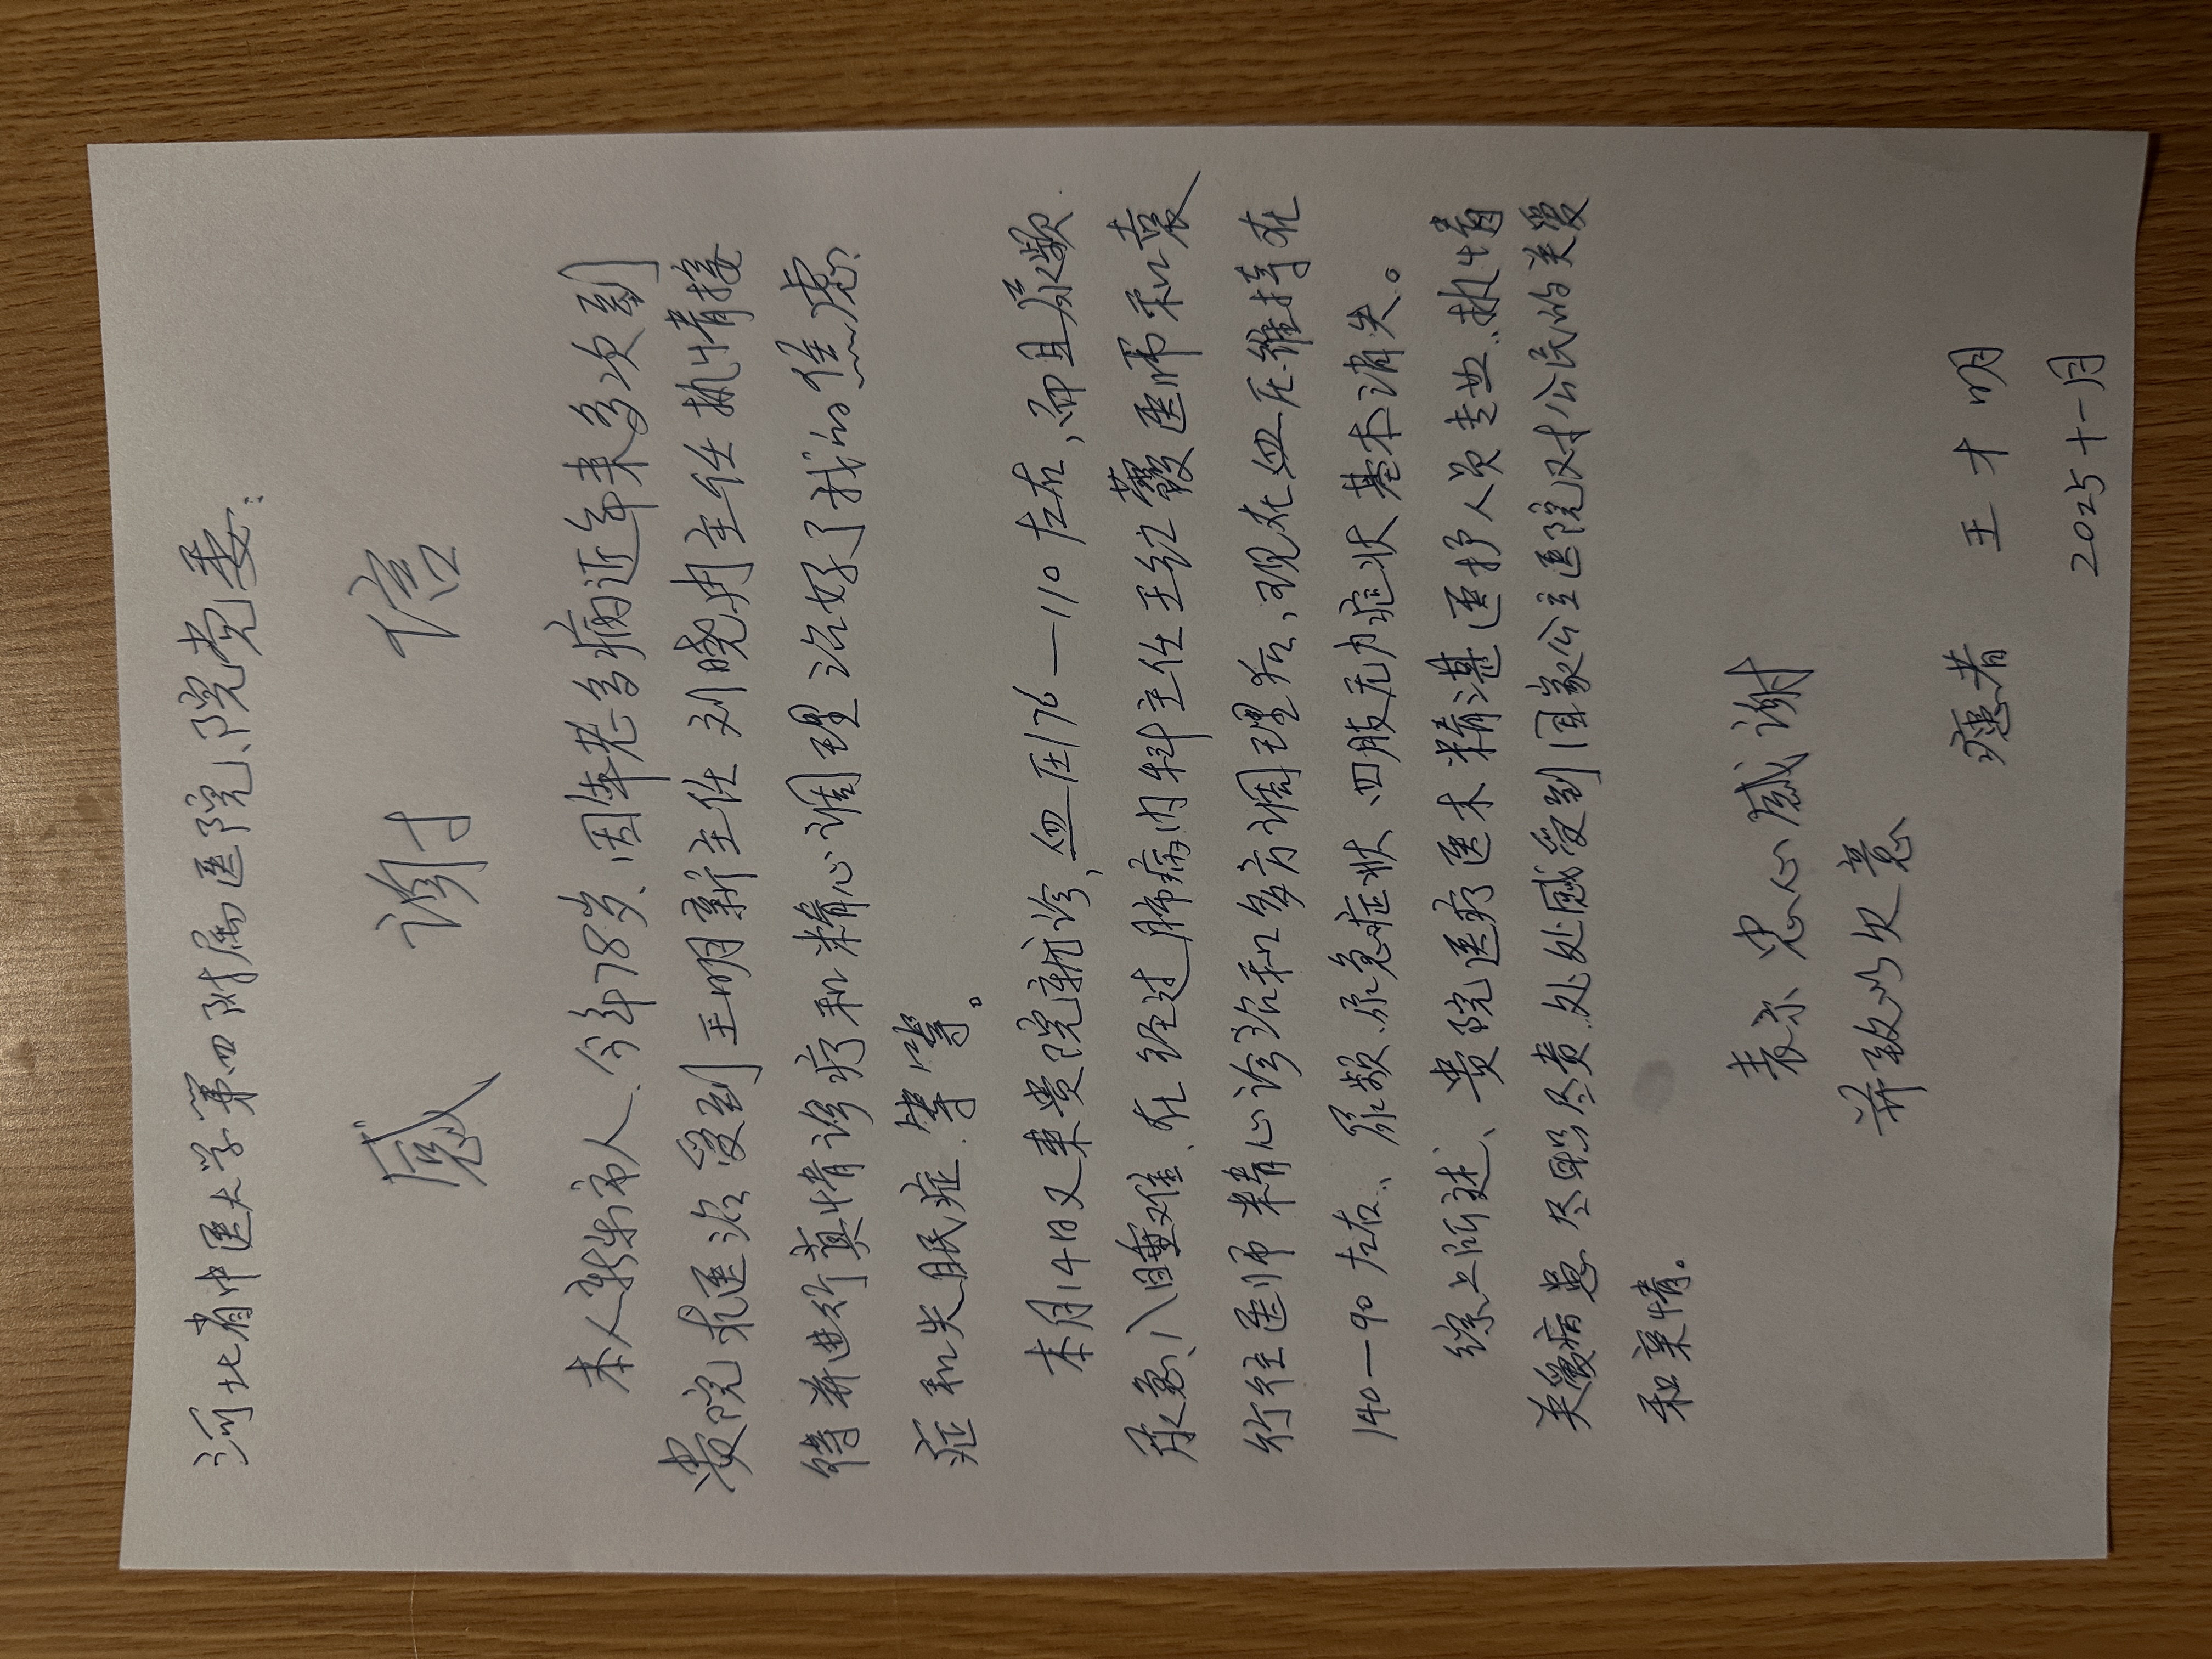 河北省中医大学第四附属医院、院党委:
感谢信
本人新乐市人.今年78岁、因年老多病近年来多次到
贵院求医治受到王明新主任 刘晓冉主任热情接
待并进行真情诊疗和精心调理治好了我的焦虑
症和失眠症.等等。
本月14日又来贵院就诊,血压176—110左右,而且尿频
尿急、入睡难.在经过肺病内科主任王红霞医师和袁
行往医师精心诊治和多方调理后,现在血压维持在
140—90左右、尿频.尿急症状、四肢无力症状基本消失。
综上所述、贵院医疗医术精湛医护人员专业.热情
关爱病患 尽职尽责.处处感受到国家公立医院对公民的关爱
和亲情。
表示忠心感谢
并致以欠意
患者 王才明
2025十一月